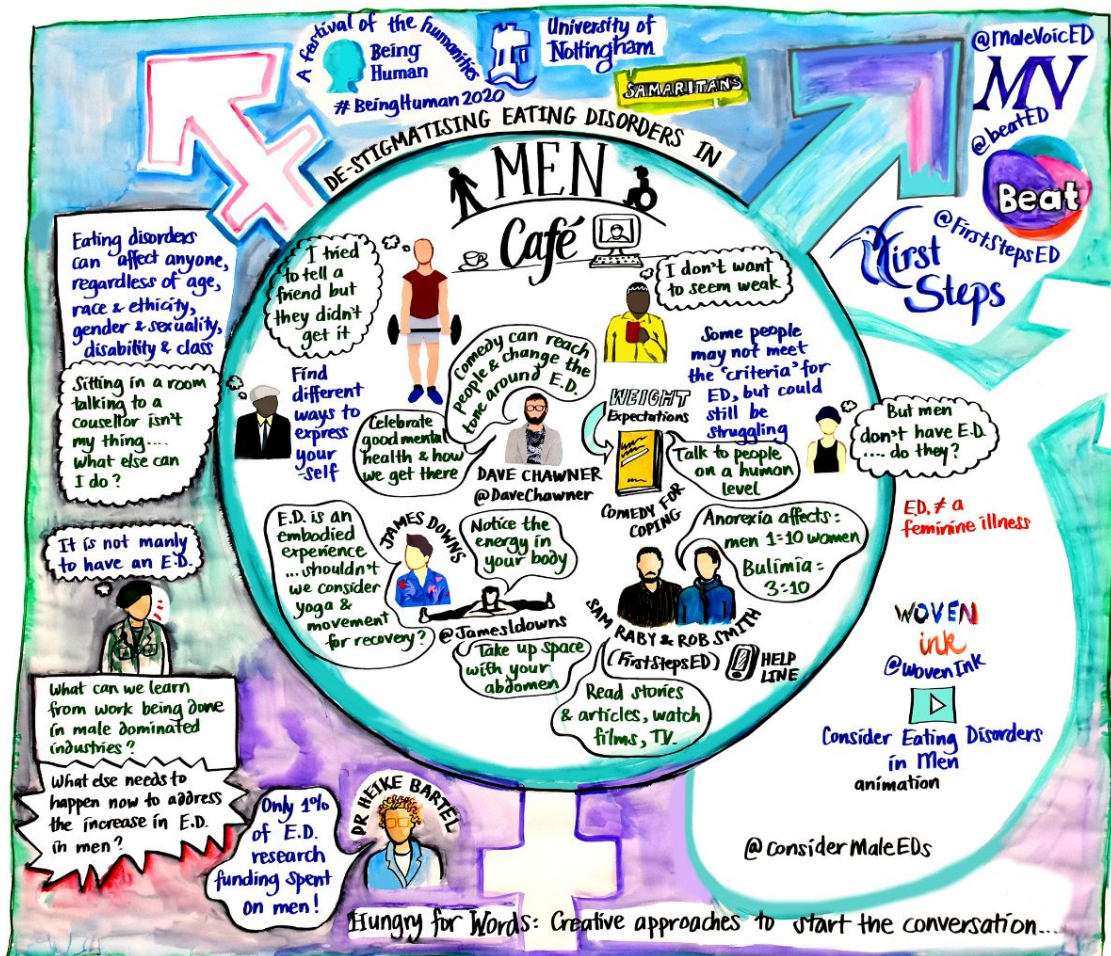 A festival of the humanities
Being
Human
#BeingHuman2020
University of
Nottingham
SAMARITANS
@maleVoicED
MV
@beatED
Beat
@FirstStepsED
First
Steps
DE-STIGMATISING EATING DISORDERS IN
MEN
Café
Eating disorders
can affect anyone,
regardless of age,
race & ethicity,
gender & sexuality,
disability & class
Sitting in a room
talking to a
cousellor isn't
my thing....
What else can
I do?
It is not manly
to have an E.D.
What can we learn
from work being done
in male dominated
industries?
What else needs to
happen now to address
the increase in E.D.
in men?
I tried
to tell a
friend but
they didn't
get it
I don't want
to seem weak
Find
different
ways to
express
your
-self
Celebrate
good mental
health & how
we get there
Comedy can reach
people & change the
tone around E.D.
DAVE CHAWNER
@DaveChawner
WEIGHT
Expectations
Some people
may not meet
the 'criteria' for
ED, but could
still be
struggling
Talk to people
on a human
level
COMEDY FOR
COPING
But men
don't have E.D.
.... do they?
E.D. ≠ a
feminine illness
E.D. is an
embodied
experience
...shouldn't
we consider
yoga &
movement
for recovery?
JAMES DOWNS
Notice the
energy in
your body
@Jamesldowns
Take up space
with your
abdomen
Anorexia affects:
men 1:10 women
Bulimia:
3:10
SAM RABY & ROB SMITH
(FirstStepsED)
HELP
LINE
Read stories
& articles, watch
films, TV.
WOVEN
ink
@WovenInk
Consider Eating Disorders
in Men
animation
@ConsiderMaleEDs
DR HEIKE BARTEL
Only 1%
of E.D.
research
funding spent
on men!
Hungry for Words: Creative approaches to start the conversation...